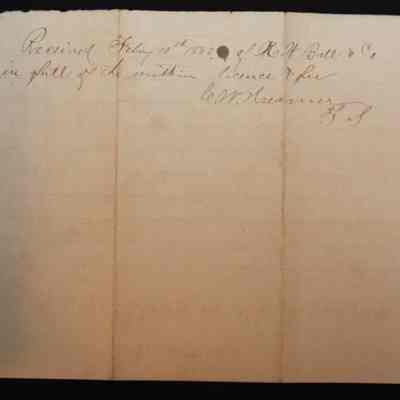 Received Feby 10th of H. W. Bell & Co
in full of the within licence & fee
C. W.